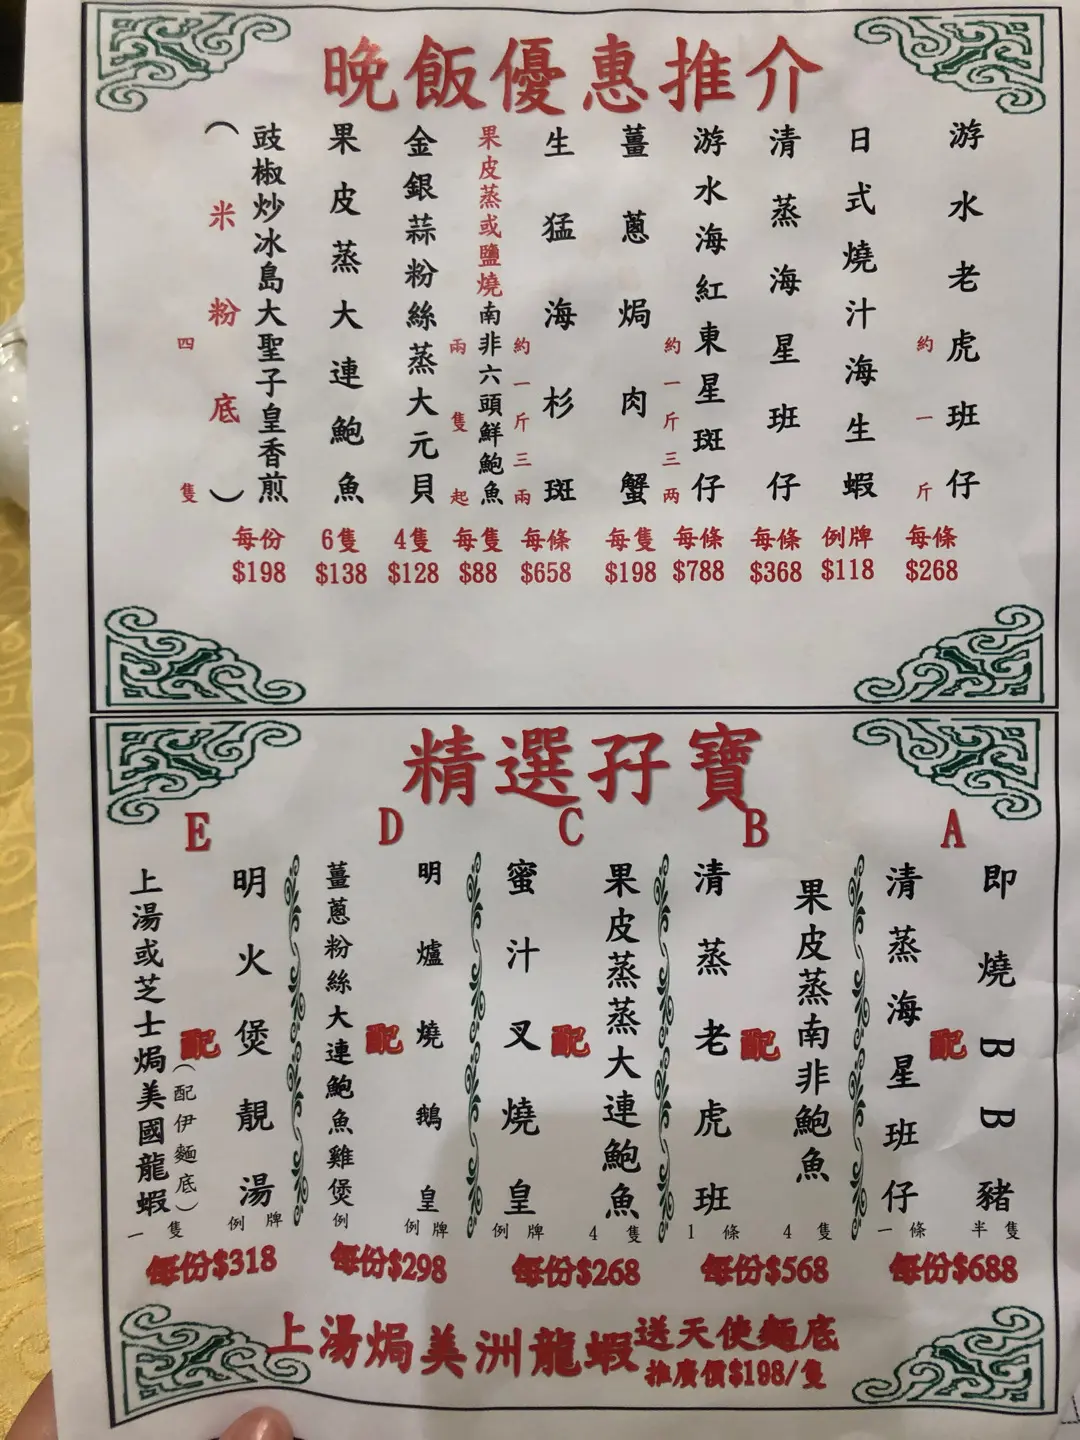 晚飯優惠推介
游水老虎班仔
約一斤
每條
$268
日式燒汁海生蝦
例牌
$118
清蒸海星班仔
每條
$368
游水海紅東星斑仔
約一斤三两
每條
$788
薑蔥焗肉蟹
每隻
$198
生猛海杉斑
約一斤三兩
每條
$658
果皮蒸或鹽燒南非六頭鮮鮑魚
兩隻起
每隻
$88
金銀蒜粉絲蒸大元貝
4隻
$128
果皮蒸大連鮑魚
6隻
$138
豉椒炒冰島大聖子皇香煎
(米粉底)
四隻
每份
$198
精選孖寶
A
即燒BB豬
半隻
配
清蒸海星班仔
一條
每份$688
B
果皮蒸南非鮑魚
4隻
配
清蒸老虎班
1條
每份$568
C
果皮蒸蒸大連鮑魚
4隻
配
蜜汁叉燒皇
例牌
每份$268
D
明爐燒鵝皇
例牌
配
薑蔥粉絲大連鮑魚雞煲
例
每份$298
E
明火煲靚湯
例牌
配
上湯或芝士焗美國龍蝦
(配伊麵底)
一隻
每份$318
上湯焗美洲龍蝦送天使麵底
推廣價$198/隻